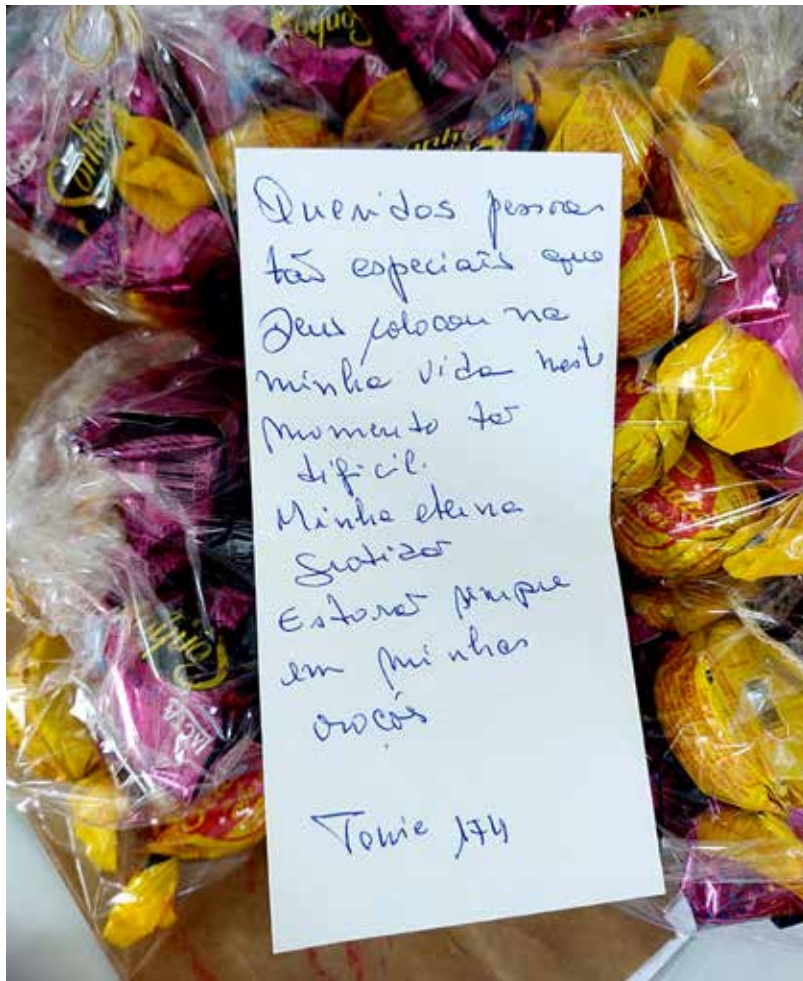 Sonho
Sonho
Queridas pessoas
tão especiais que
Deus colocou na
minha vida neste
momento tão
difícil.
Minha eterna
gratidão
Estarão sempre
em minhas
orações
174
Sonho